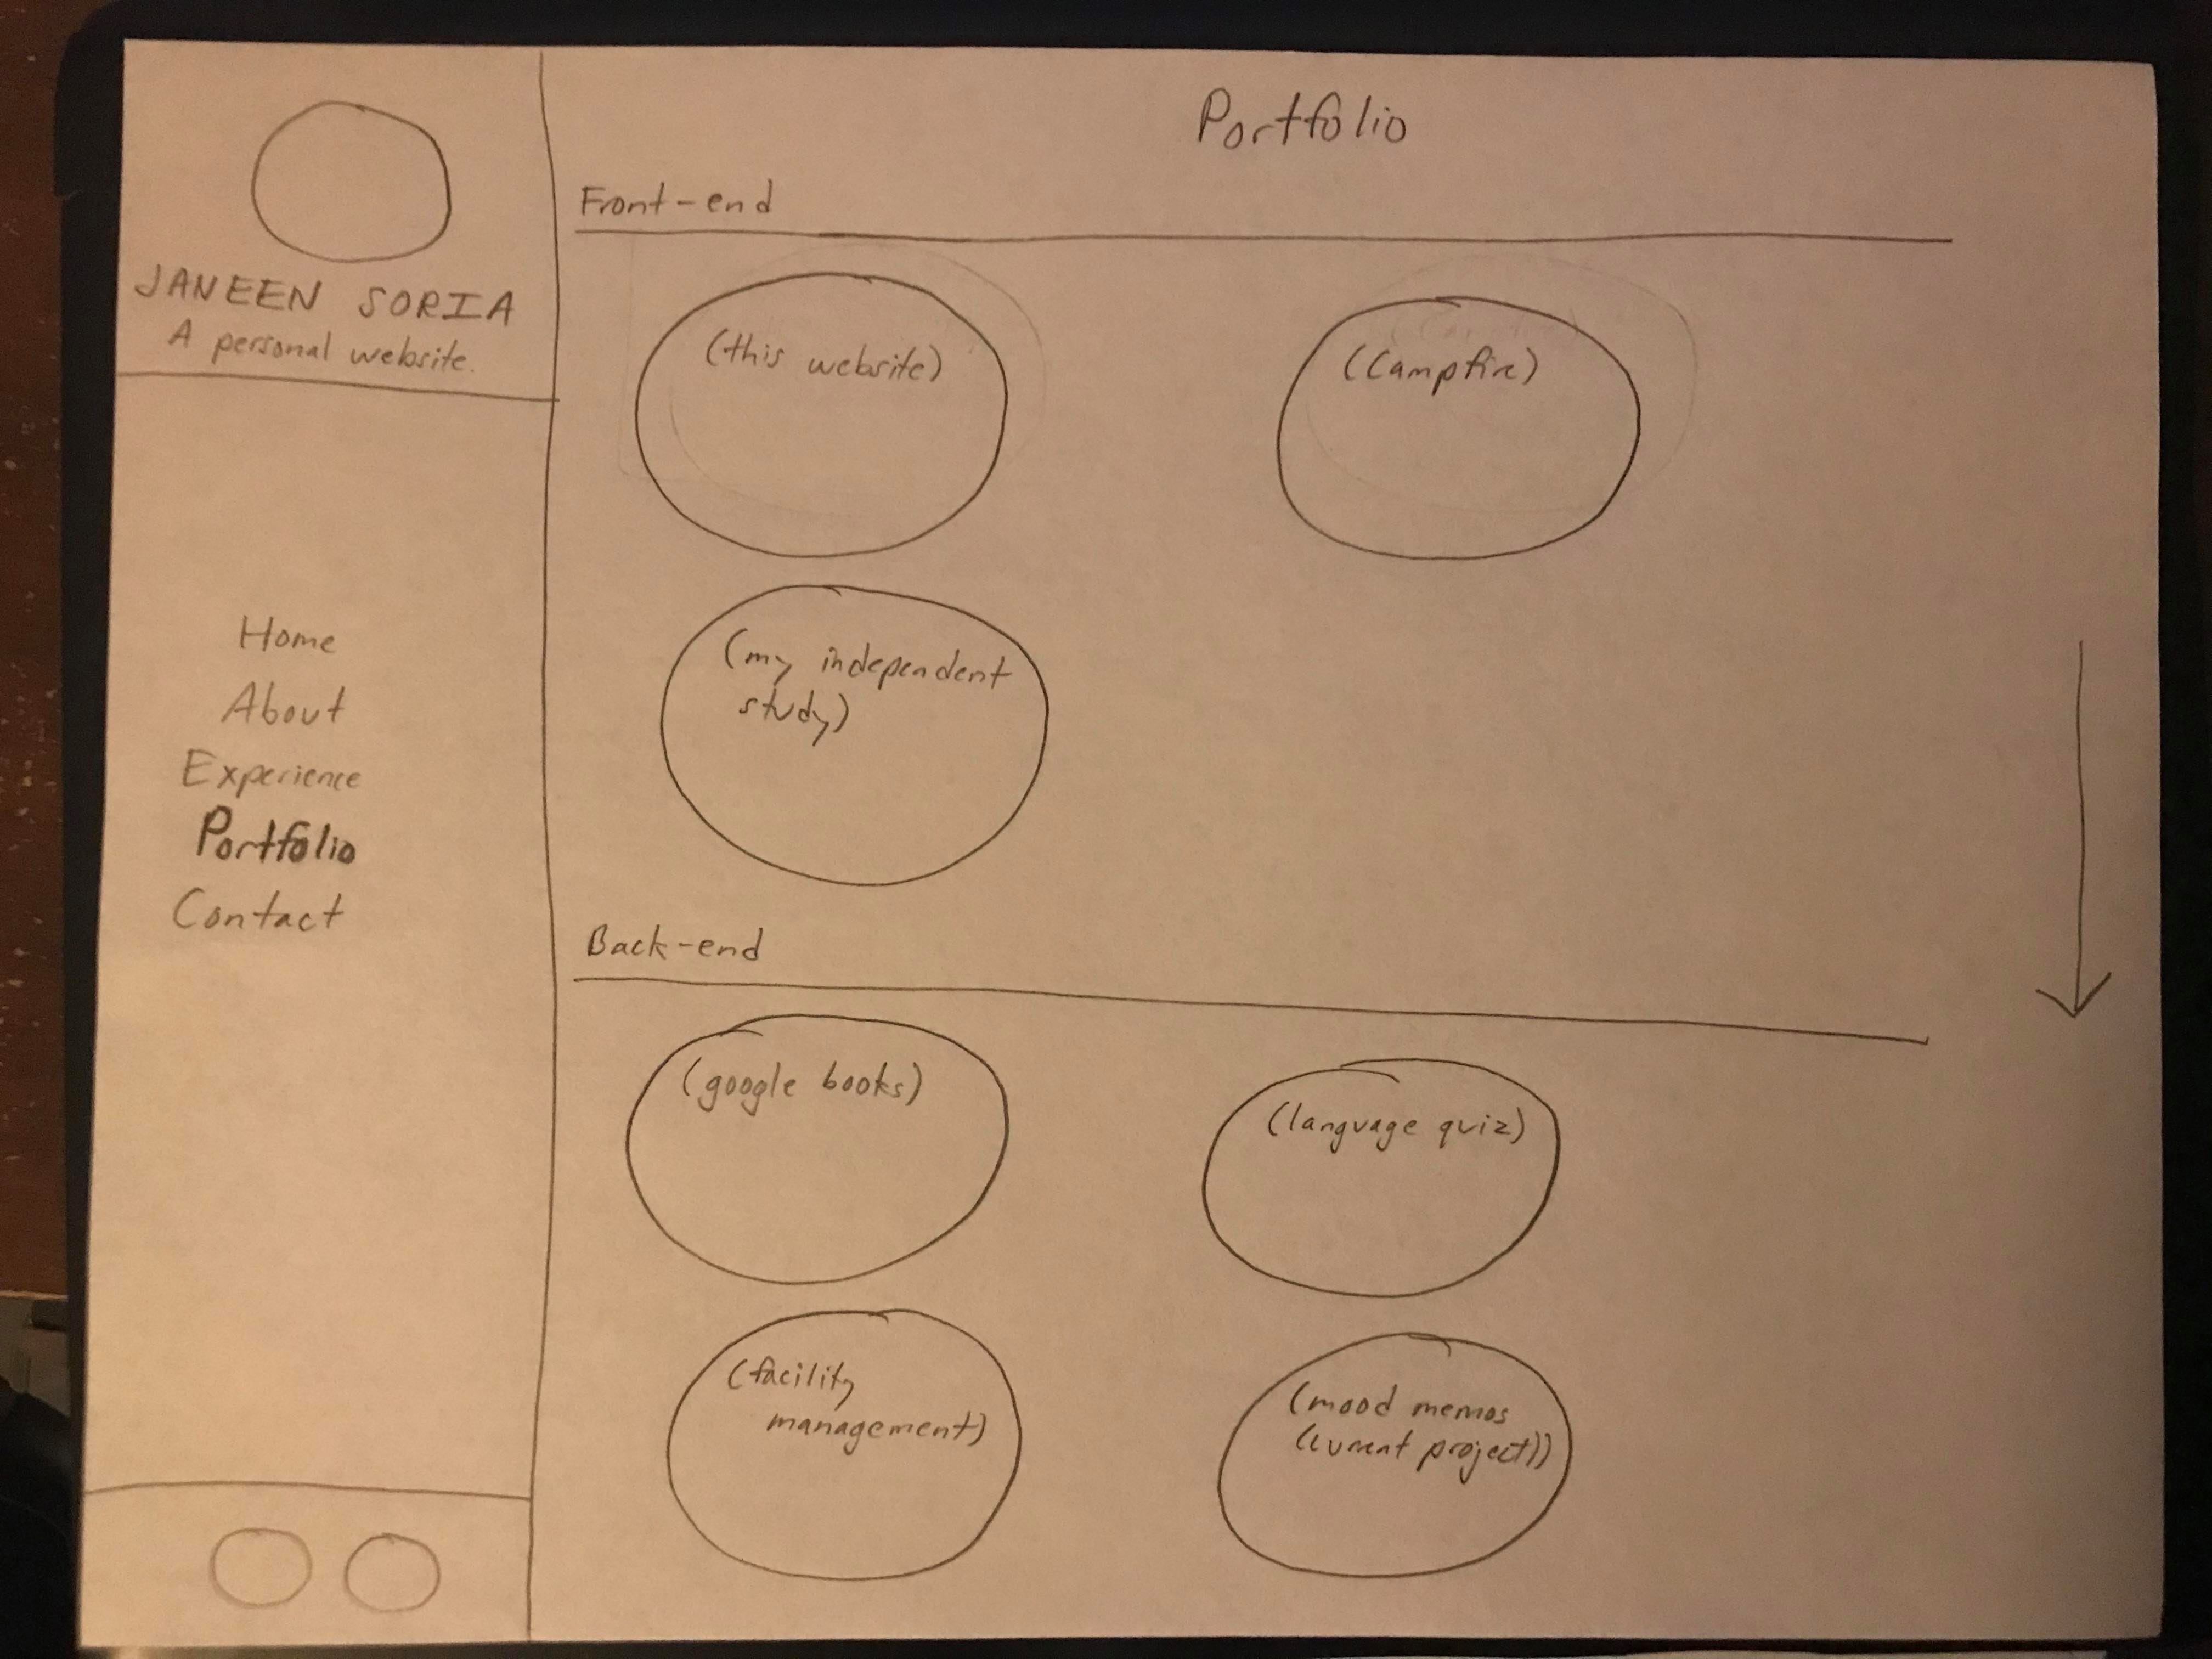 JANEEN SORIA
A personal website.
Home
About
Experience
Portfolio
Contact
Portfolio
Front-end
(this website)
(Campfire)
(my independent
study)
Back-end
(google books)
(language quiz)
(facility
management)
(mood memos
(current project))